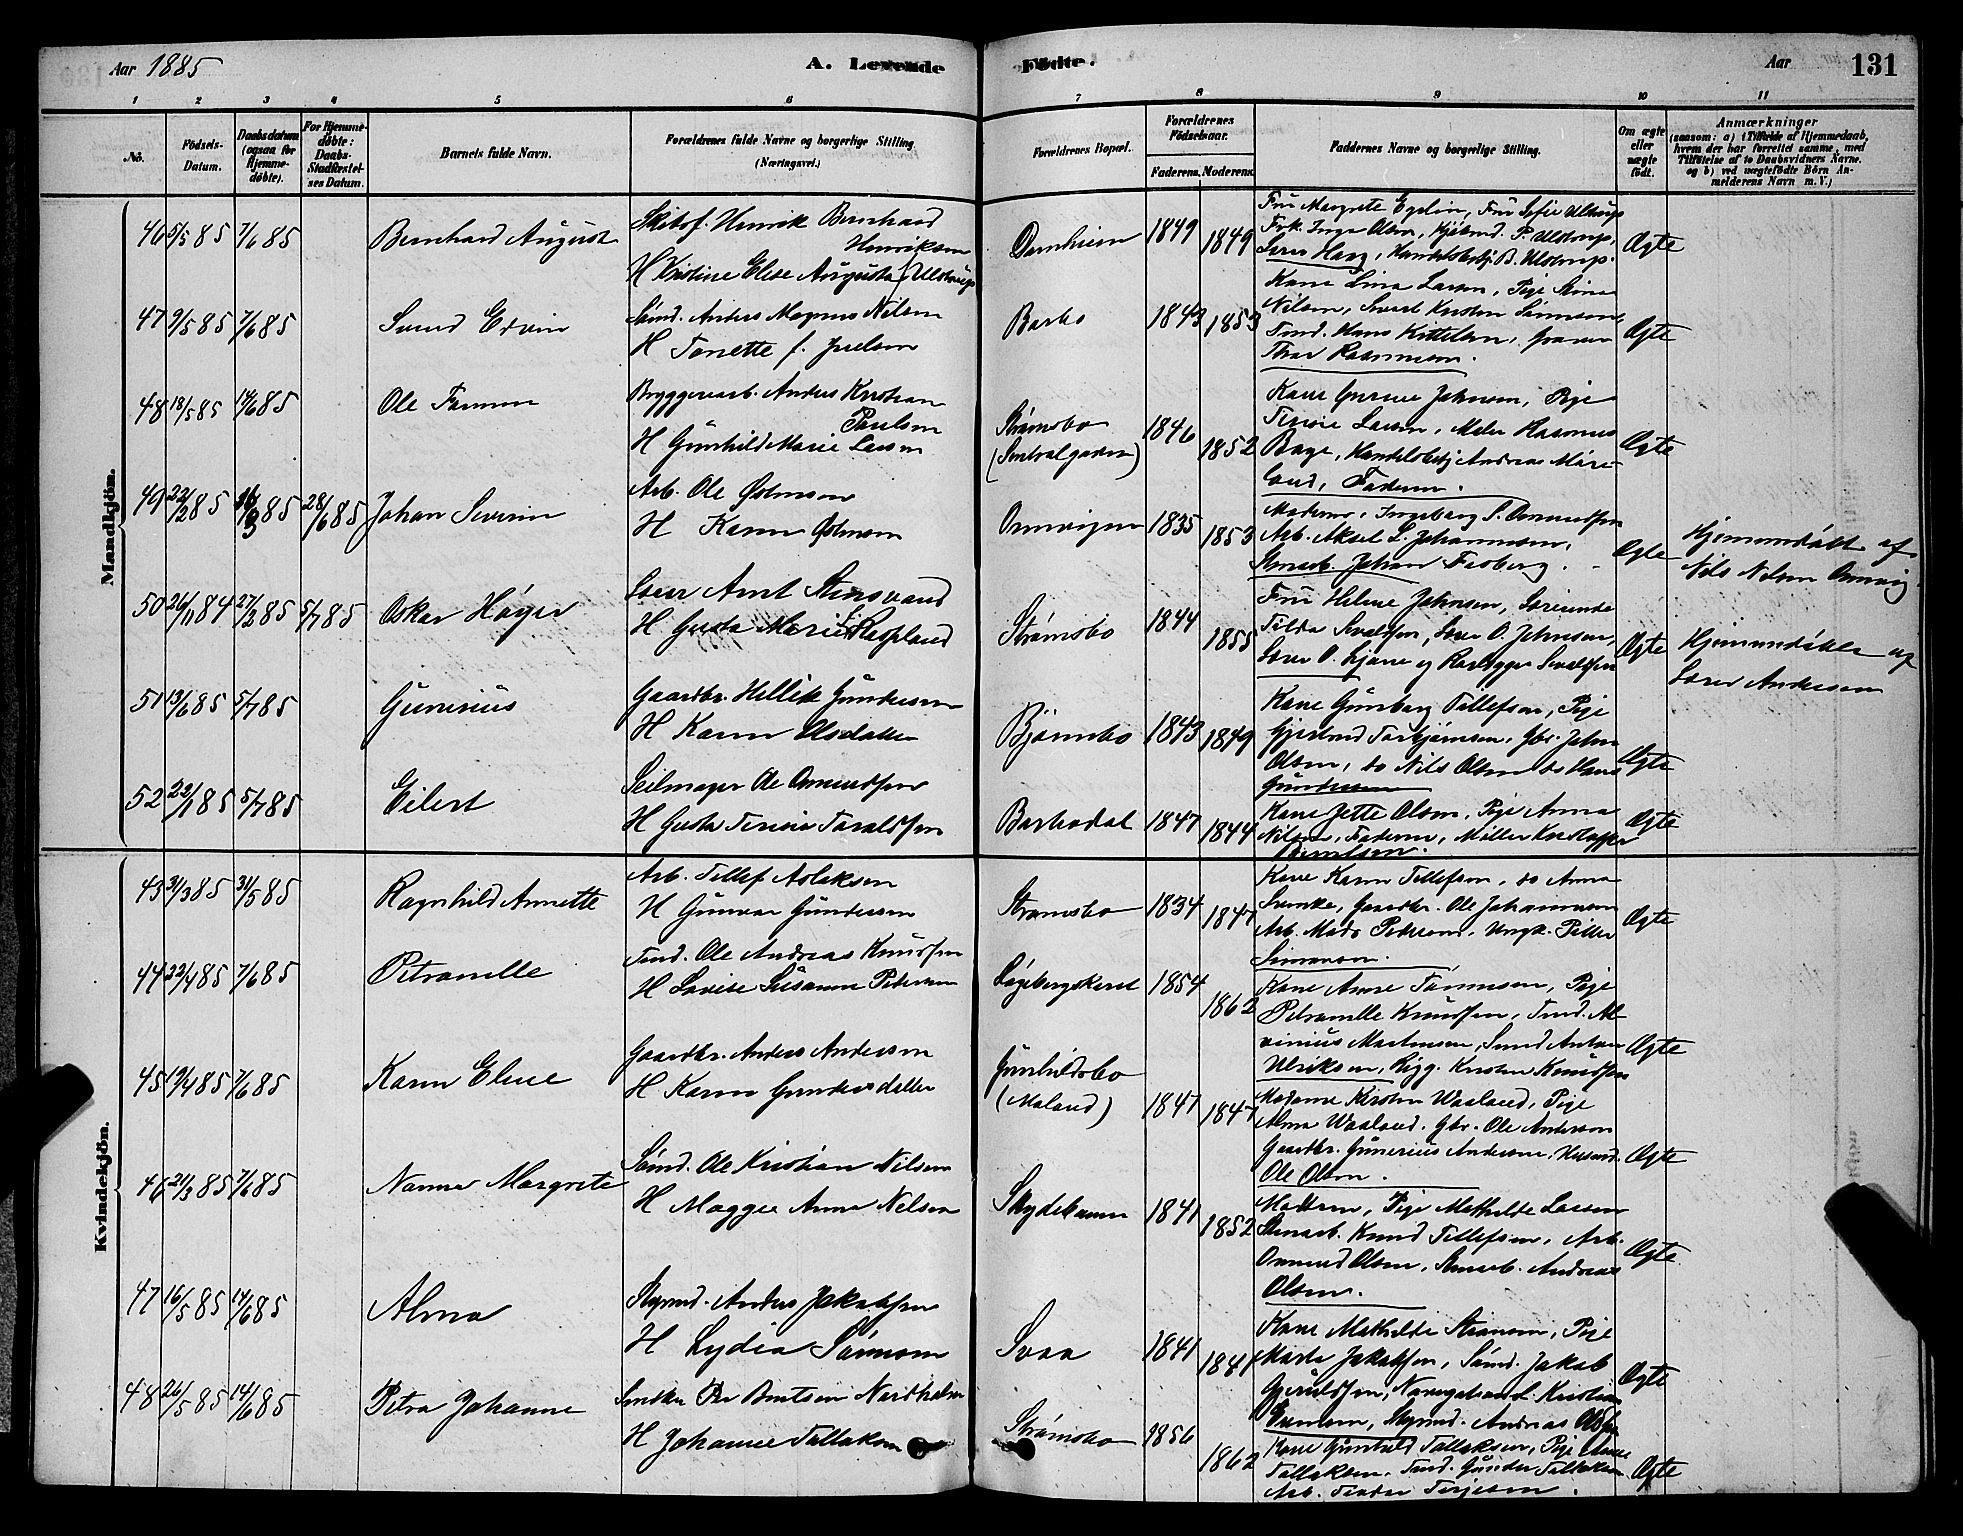 Aar 1885
A. Levende
Fødte.
Aar
131
1 2 3 4 5 6 7 8 9 10 11
No.
Fødsels-Datum.
Daabsdatum (ogsaa for Hjemmedøbte).
For Hjemmedøbte: Daabs-Stadfæstelses Datum.
Barnets fulde Navn.
Forældrenes fulde Navne og borgerlige Stilling (Næringsvei.)
Forældrenes Bopæl.
Forældrenes Fødselsaar.
Faderens. Moderens.
Faddernes Navne og borgerlige Stilling.
Om ægte eller uægte født.
Anmærkninger
(saasom: a) i Tilfælde af Hjemmedaab, hvem der har forrettet samme, med Tilføielse af to Daabsvidners Navne. og b) ved uægtefødte Børn Anmelderens Navn m. V.)
Mandkjön.
46 5/5 85 7/6 85 Bernhard August
Skibsf. Henrik Bernhard
Henriksen
H Kristine Elise Augusta f. Ulstrup
1849 1849
Fru Margrete Egelin, Fru Sofie Ulstrup
Frk. Inga Olsen, Kjøbmd. P. Ulstrup,
Ægte
47 9/5 85 7/6 85 Svend Edvin
Sømd. Anders Magnus Nilsen
H Tomette f. Juelsen
Barbo 1843 1853
Kone Lina Larsen, Pige
Nilsen,
Tmd. Hans Kittelsen,
Thor Rasmussen.
Ægte
48 18/5 85 14/6 85 Ole
Bryggeriarb. Anders Kristian
Paulsen
H Gunhild Marie Larsen
Strømsbo
(Sentralgaden)
1846 1852
Kone Gurine Johnsen, Pige
Larsen, Maler Rasmus
Bage, Handelsbetj Andreas
Faderen.
Ægte
49 22/2 85 16/3 85 28/6 85 Johan Severin
Arb. Ole Østensen
H Karen Østensen
Omvigen 1835 1853
Moderen, Ingeborg S. Omundsen
Arb. Aksel L. Johannesen,
Stenarb. Johan
Ægte
Hjemmedøbt af
Nils Nilsen Omvig
50 26/11 84 27/2 85 5/7 85 Oskar Høger
Losar Arnt Stensvand
H Gusta Marie f. Raspland
Strømsbo 1844 1855
Fru Helene Johnsen,
Tilda Sevaldsen, Losar O. Johnsen,
Ægte
Hjemmedøbt af
Losar Andersen
51 13/6 85 5/7 85 Gunerius
Gaardbr. Hellik Gundersen
H Karen Olsdatter
Bjønnebo 1843 1849
Kone Gunborg Tellefsen, Pige
Torbjørnsen, Gbr. John
Olsen, do Nils Olsen do Hans
Gundersen
Ægte
52 22/1 85 5/7 85 Eilert
Seilmager Ole Omundsen
H Gusta Terine Taraldsen
Barbodal 1847 1844
Kone Jette Olsen, Pige Anna
Nilsen, Faderen, Møller Kristoffer
Ægte
Kvindekjön.
43 31/3 85 31/5 85 Ragnhild Annette
Arb. Tellef Aslaksen
H Gunvor Gundersen
Strømsbo 1834 1847
Kone Karen Tellefsen, do Anna
Gaardbr. Ole Johannesen
Arb. Mads Pedersen, Ungk. Peder
Simonsen.
Ægte
44 22/4 85 7/6 85 Petronelle
Tmd. Ole Andreas Knudsen
H Lovise Susanne Petersen
1854 1862
Kone Anne Tønnesen, Pige
Petronelle Knudsen, Tmd. Al-
vinius Martinsen, Smed Anton
Ulriksen, Rigg. Kristen Knudsen
Ægte
45 19/4 85 7/6 85 Karen Eline
Gaardbr. Anders Andersen
H Karen Gundersdatter
Gunhildsbo
(Moland)
1847 1847
Madame Kirsten Waaland, Pige
Alma Waaland. Gbr. Ole Andersen
Gaardbr. Gunerius Andersen, Husmd.
Ole Olsen.
Ægte
46 21/3 85 7/6 85 Nanna Margrete
Sømd. Ole Kristian Nilsen
H Maggie Anna Nelson
Skydebanen 1841 1852
Moderen, Pige Mathilde Larsen
Stenarb. Knud Tellefsen, Arb.
Ommund Olsen, Stenarb. Andreas
Olsen.
Ægte
47 16/5 85 14/6 85 Alma
Anders Jakobsen
H Lydia Sørensen
Svaa 1841 1841
Kone Mathilde Pige
Marta Jakobsen, Sømd. Jakob
Gjeruldsen, Kristian
Andreas Olsen
Ægte
48 26/5 85 14/6 85 Petra Johanne
Per Berntsen Nordholm
H Johanne Tallaksen
Strømsbo 1856 1862
Kone Gunhild Tallaksen, Pige Anne
Tallaksen, Tmd. Gunder Tallaksen
Arb. Terjesen.
Ægte